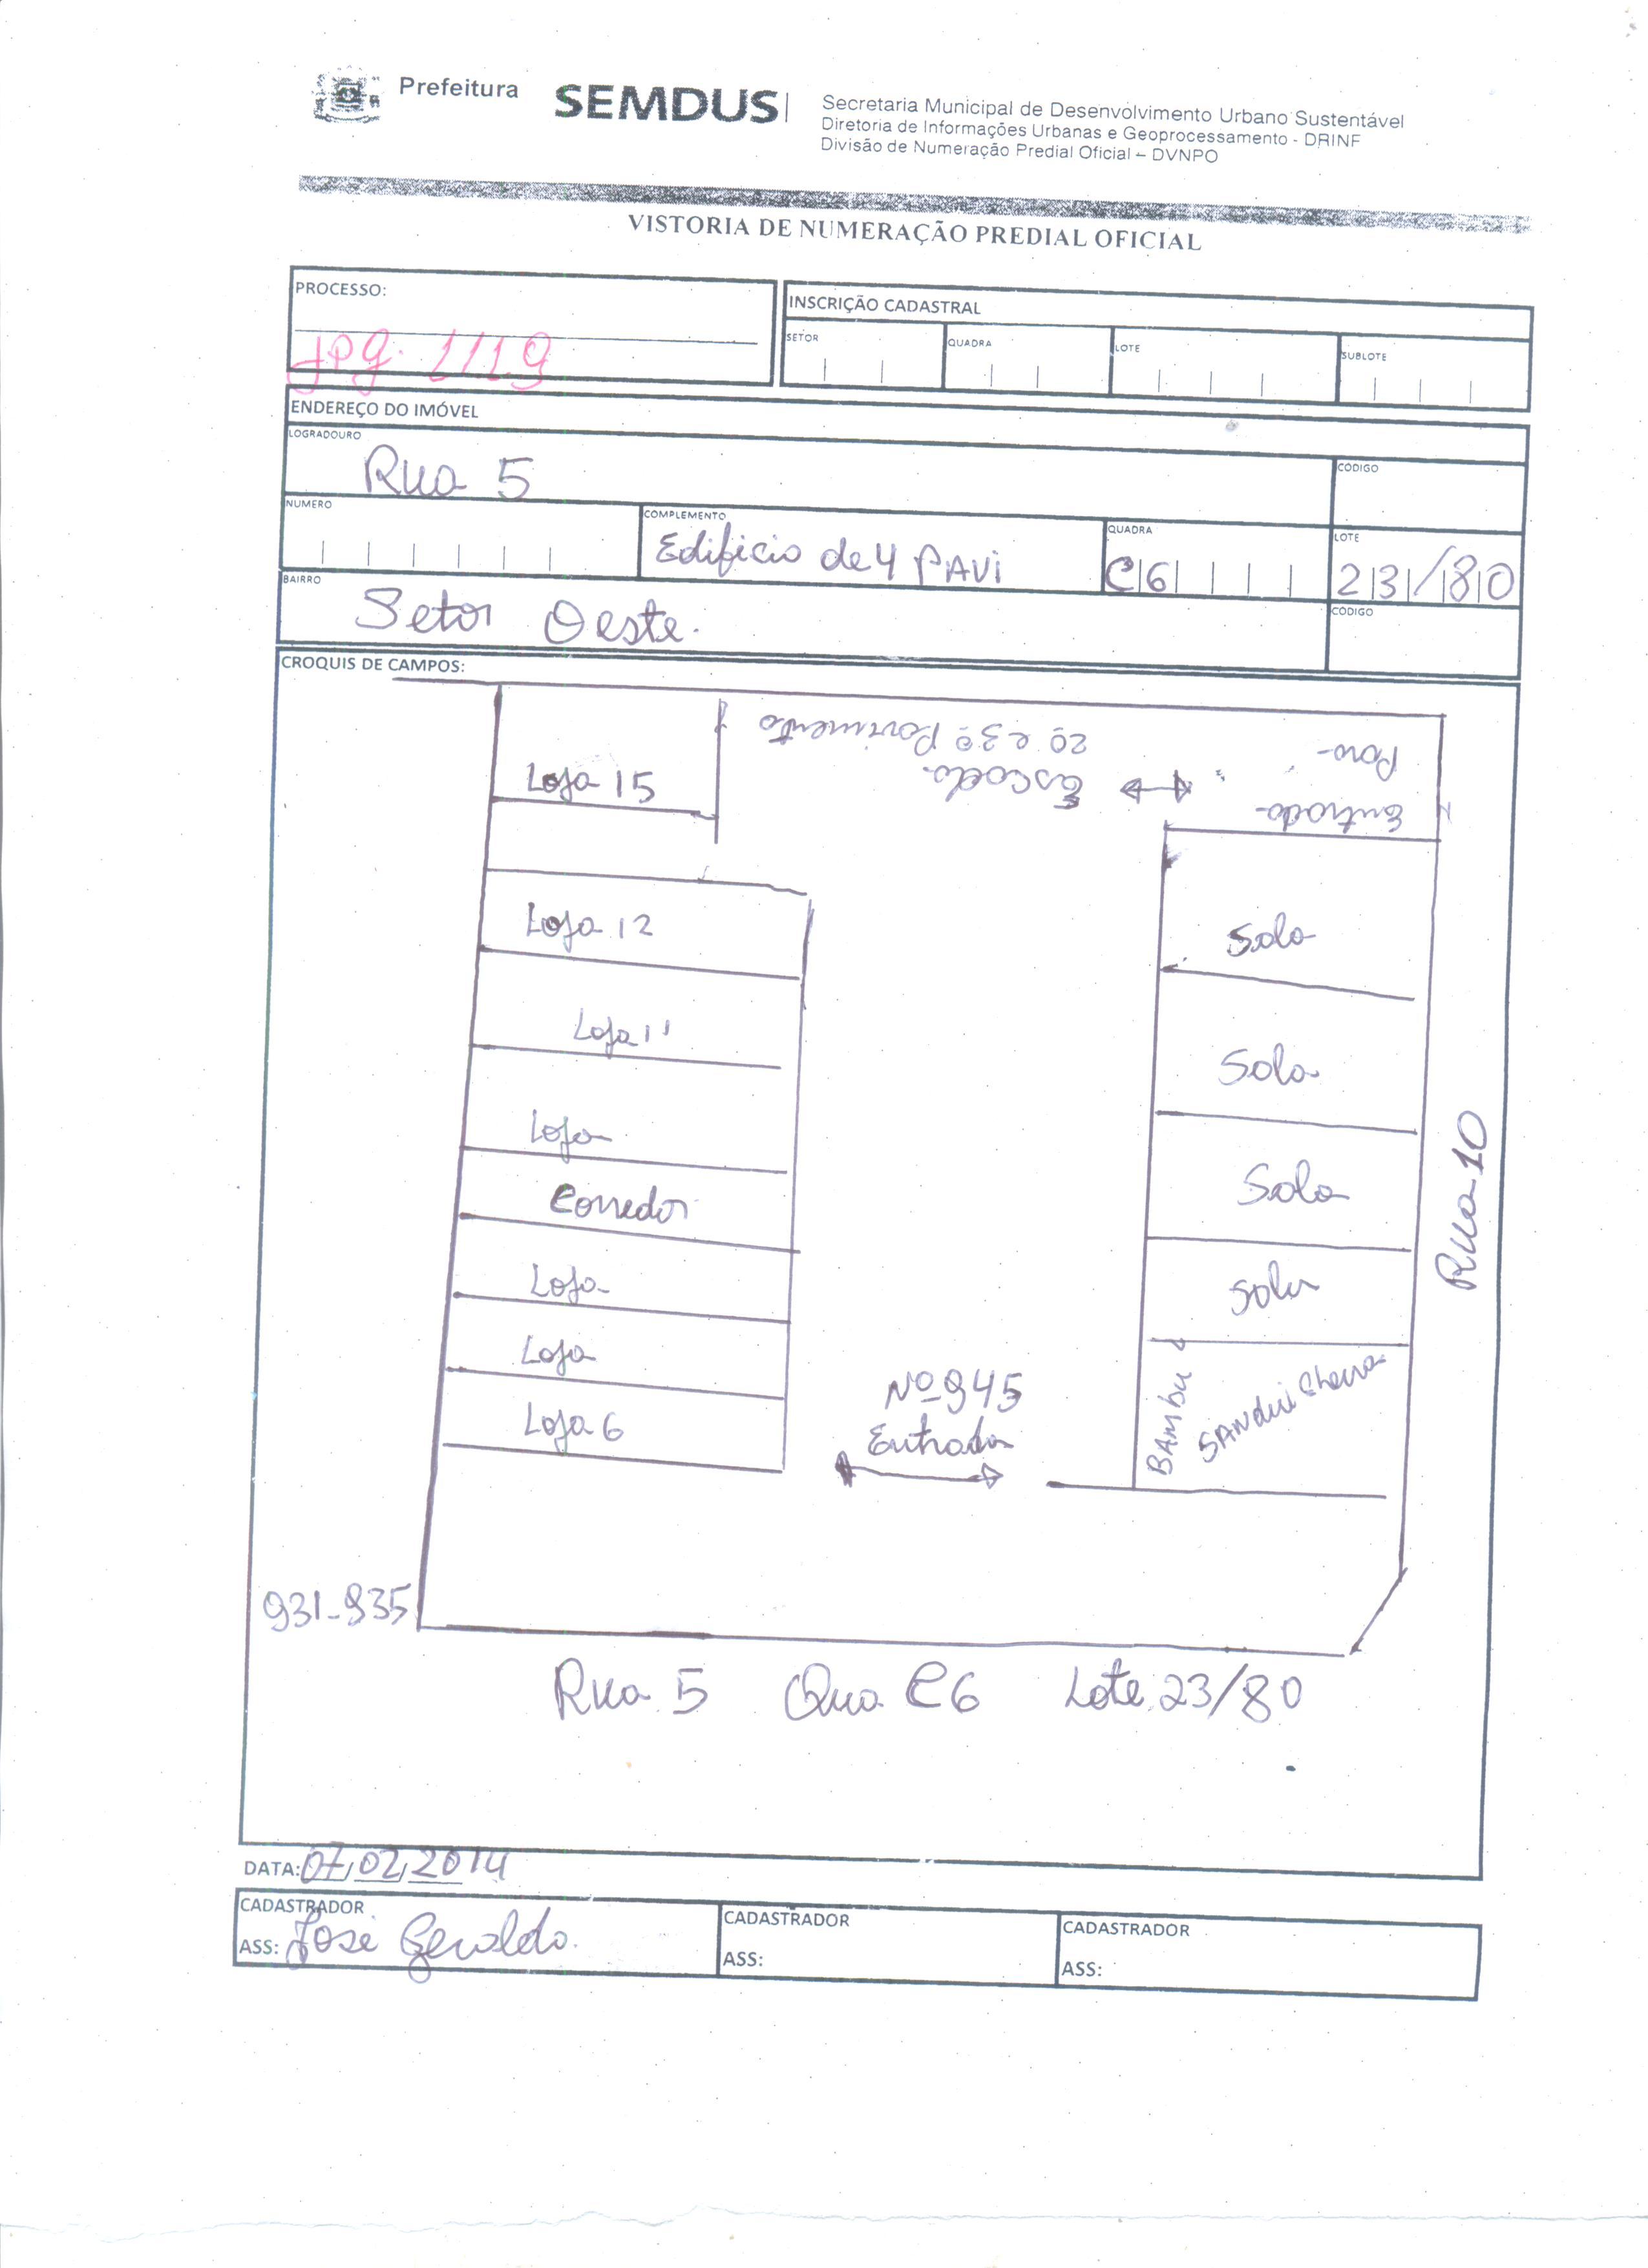 Prefeitura SEMDUS
Secretaria Municipal de Desenvolvimento Urbano Sustentável
Diretoria de Informações Urbanas e Geoprocessamento - DRINF
Divisão de Numeração Predial Oficial – DVNPO
VISTORIA DE NUMERAÇÃO PREDIAL OFICIAL
PROCESSO:
jpg. 1119
INSCRIÇÃO CADASTRAL
SETOR QUADRA LOTE SUBLOTE
ENDEREÇO DO IMÓVEL
LOGRADOURO
Rua 5
CÓDIGO
NUMERO
COMPLEMENTO
Edificio de 4 PAVi
QUADRA
C6
LOTE
23/80
BAIRRO
Setor Oeste.
CÓDIGO
CROQUIS DE CAMPOS:
Entrada
Para
Escada
2º e 3º Pavimento
Loja 15
Loja 12
Loja 11
Loja
Corredor
Loja
Loja
Loja 6
Sala
Sala
Sala
Sala
BAmbu
SANduicheria
Rua 10
Nº 945
Entrada
931-935
Rua 5 Qua C6 Lote 23/80
DATA: 07/02/2014
CADASTRADOR
ASS: José Geraldo.
CADASTRADOR
ASS:
CADASTRADOR
ASS: